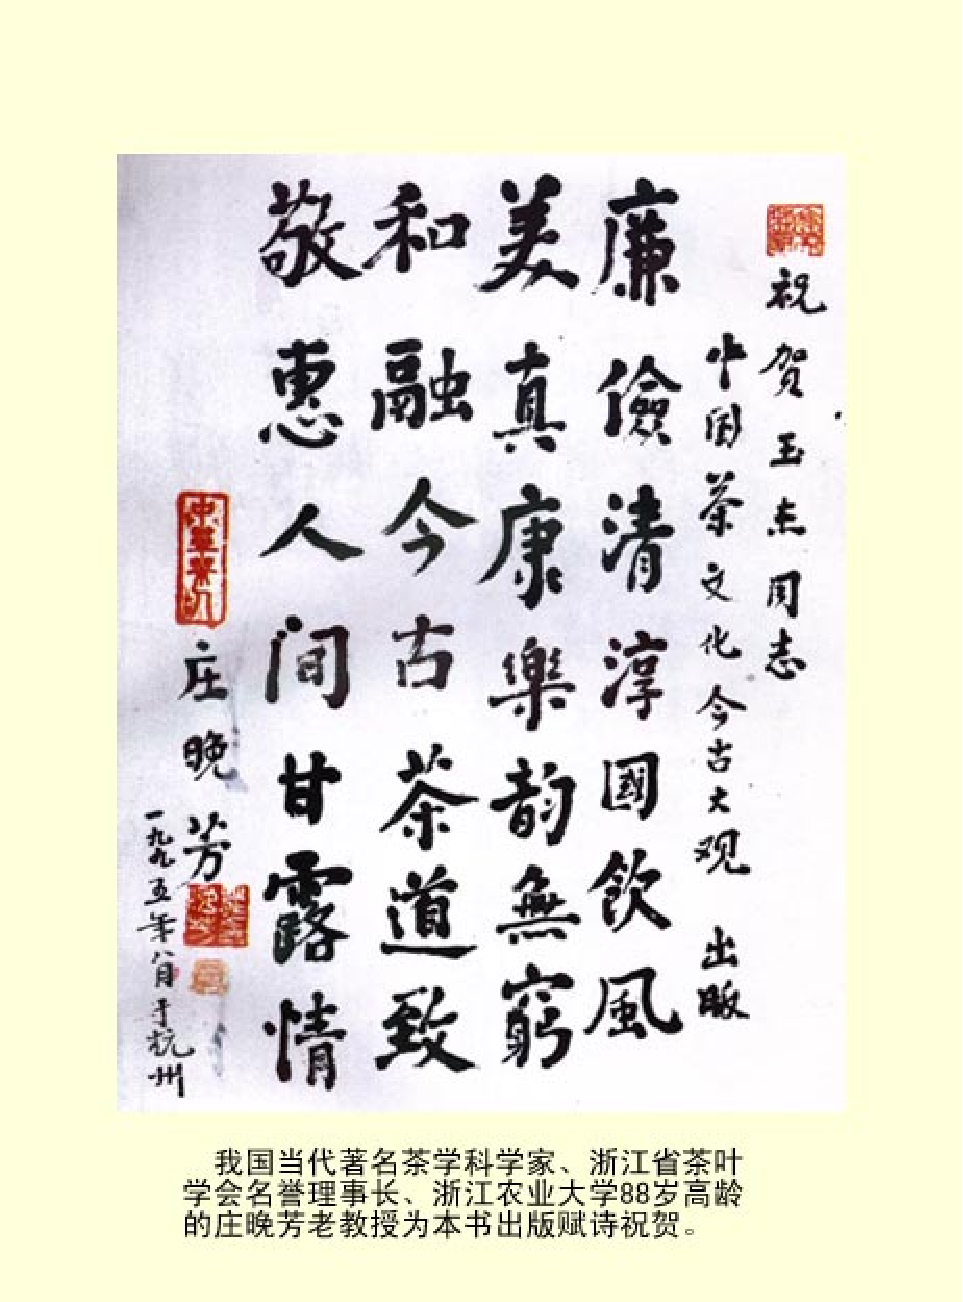 祝贺玉杰同志
中国茶文化今古大观 出版
廉儉清淳國飲風
美真康樂韵無窮
和融今古茶道致
敬惠人间甘露情
中華茶人
庄晚芳
一九九五年八月于杭州
我国当代著名茶学科学家、浙江省茶叶
学会名誉理事长、浙江农业大学88岁高龄
的庄晚芳老教授为本书出版赋诗祝贺。